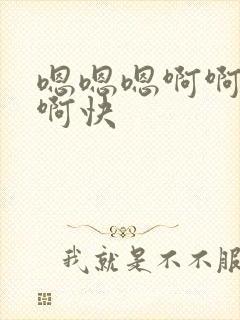 嗯嗯嗯啊啊
啊快
我就是不不服